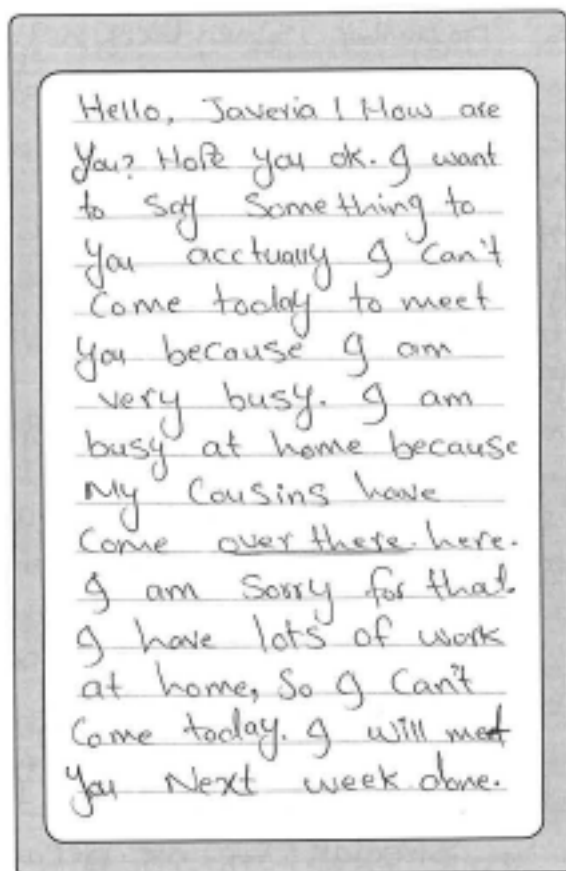 Hello, Javeria! How are
you? Hope you ok. I want
to say something to
you acctually I can't
come today to meet
you because I am
very busy. I am
busy at home because
My Cousins have
come over there. here.
I am sorry for that.
I have lots of work
at home, So I Can't
Come today. I will met
you Next week done.